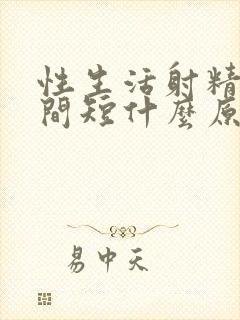 性生活射精
間短什麼原
易中天